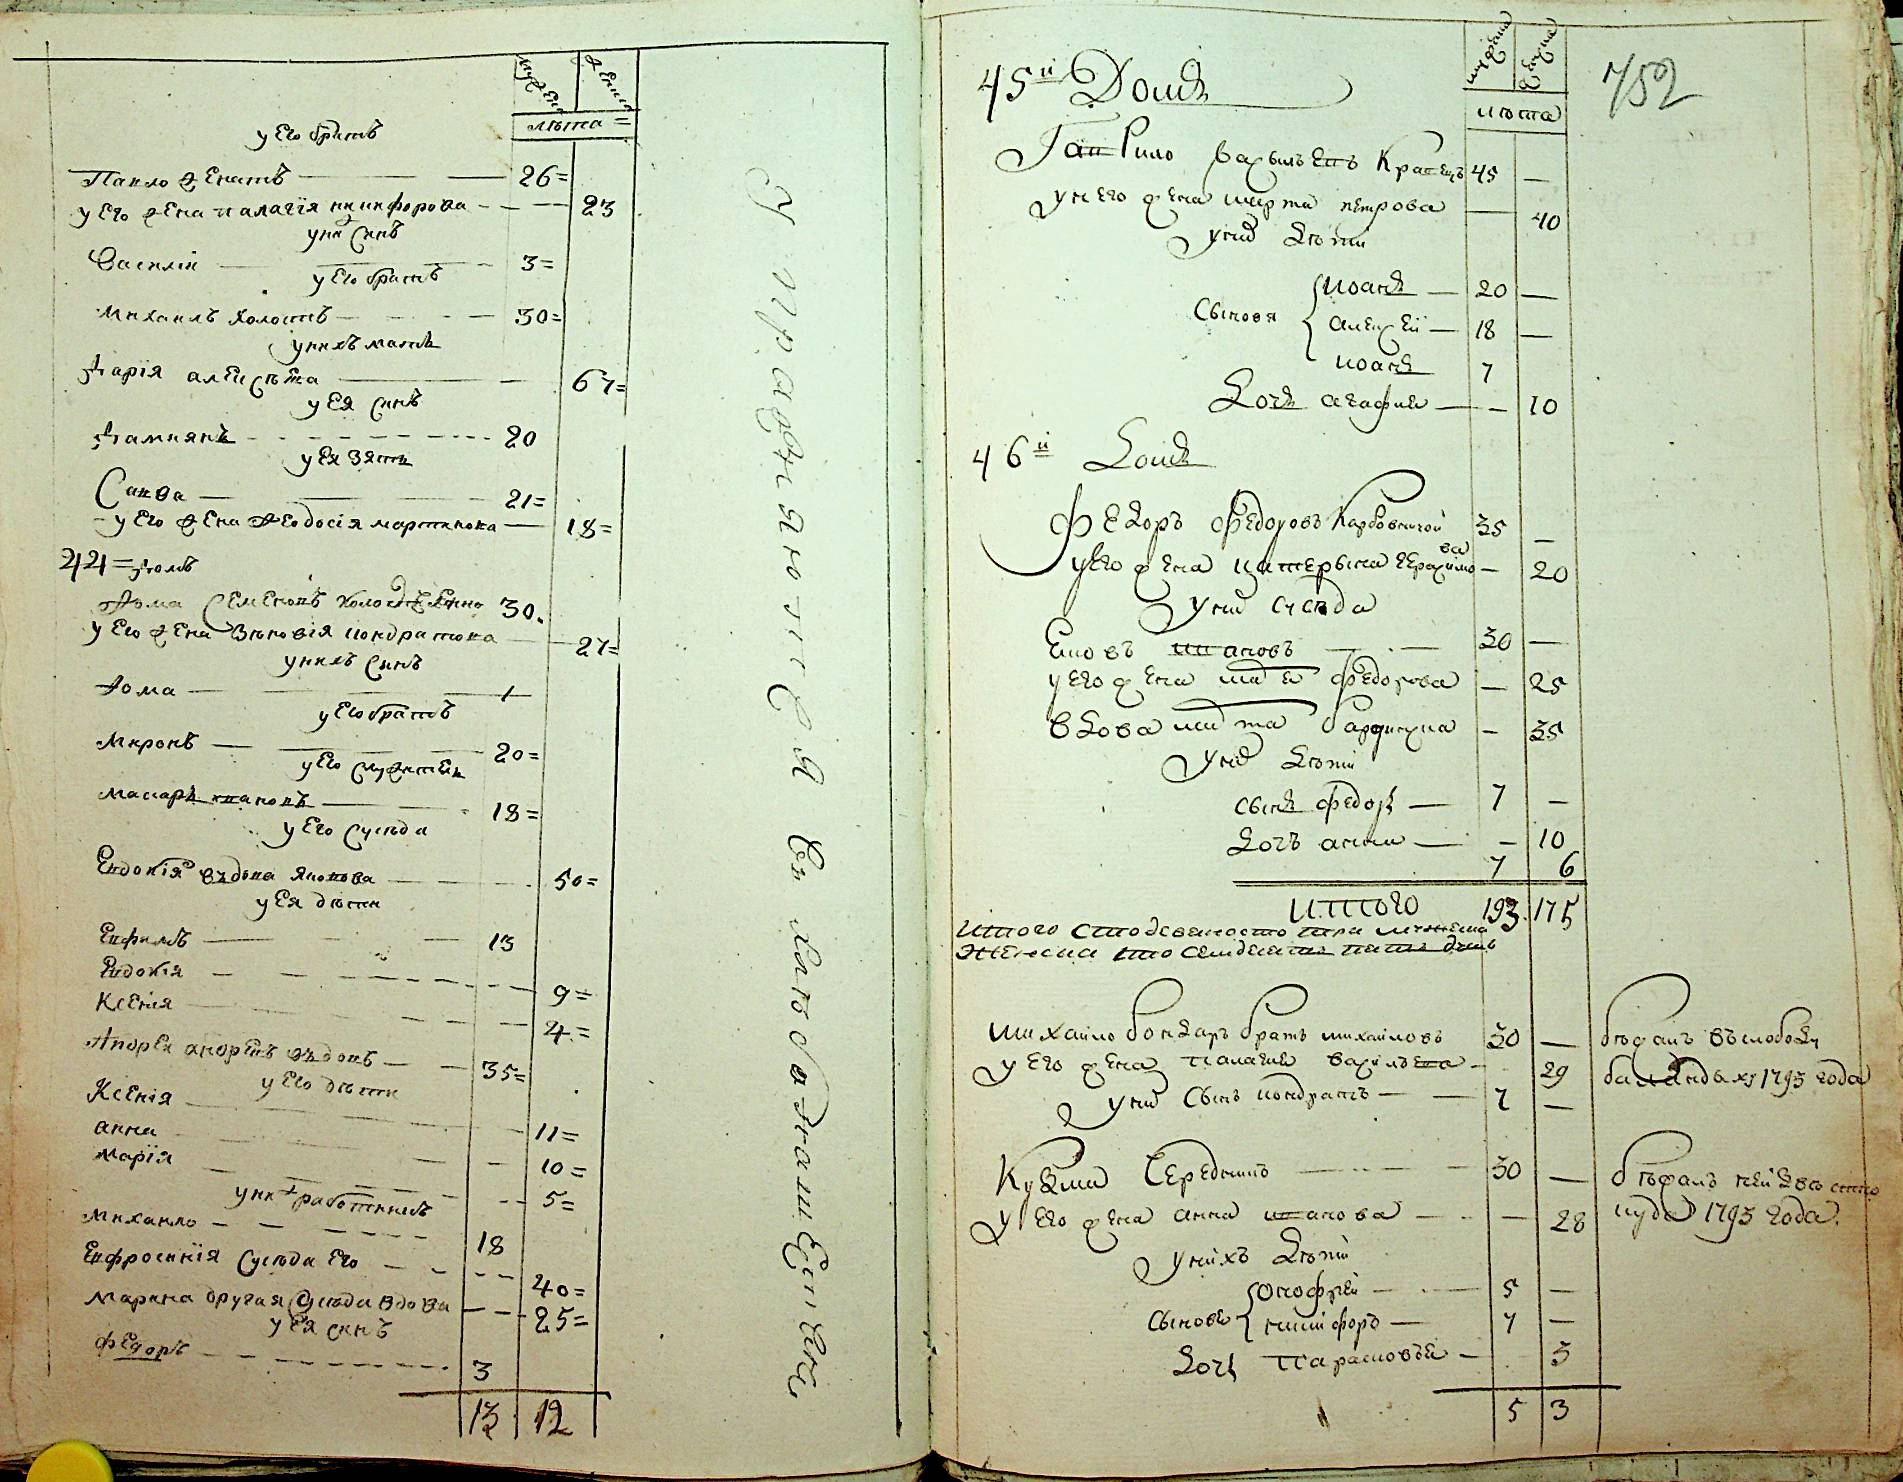 мужеска
женска
лѣта =
у Его братъ
Павло женатъ 26=
у Его жена палагія никифорова 23
у ни Синъ
Василій 3=
у Его братъ
Михаилъ Холостъ 30=
у нихъ мать
Дарія алеисѣева 67=
у Ея Синъ
Дамианъ 20
у Ея Зять
Савва 21=
у Его жена Феодосія мартинова 18=
44=домъ
Фома Семеновъ 30.
у Его жена Зѣновія кондратова 27=
у нихъ Синъ
Фома 1
у Его братъ
Миронъ 20=
у Его служитель
Макаръ ивановъ 18=
у Его Сусѣда
Евдокія вдова Яковова 50=
у Ея дѣти
Евфимъ 13
Евдокія 9=
Ксенія 4=
Андрей вдовъ 35=
у Его дѣти
Ксенія 11=
анна 10=
марія 5=
у ни работникъ
Михаило 18
Евфросинія Сусѣда Его 40=
марина другая Сусѣда вдова 25=
у Ея синъ
Федоръ 3
13 12
мужеска
женска
лѣта
752
45й Домъ
Гаврило Василевъ Кравецъ 45 —
у него жена марта петрова — 40
у них дѣти
Сыновя
иоанъ 20 —
алексѣй 18 —
иоанъ 7
дочь агафия — 10
46й домъ
Федоръ Федоровъ 35 —
у Его жена катерына Герасимова — 20
у них сусѣда
ивановъ 30 —
у Его жена Федорова — 25
вдова марта — 35
у них дѣти
сынъ федоръ 7 —
дочь анна — 10
7 6
итого 193. 175
итого сто девяносто три мужеска
женска сто семдесятъ пять душъ
михайло бондаръ братъ михайловъ 30 — бѣжалъ въ слободу
у Его жена палагия василева 29 1795 года
у них Сынъ кондратъ 7 —
Кузма Середынъ 30 — бѣжалъ неизвѣстно
у Его жена анна иванова — 28 куда 1795 года.
у нихъ дѣти
Сынове
онофрей 5 —
никифоръ 7 —
дочь Парасковѣя 3
5 3